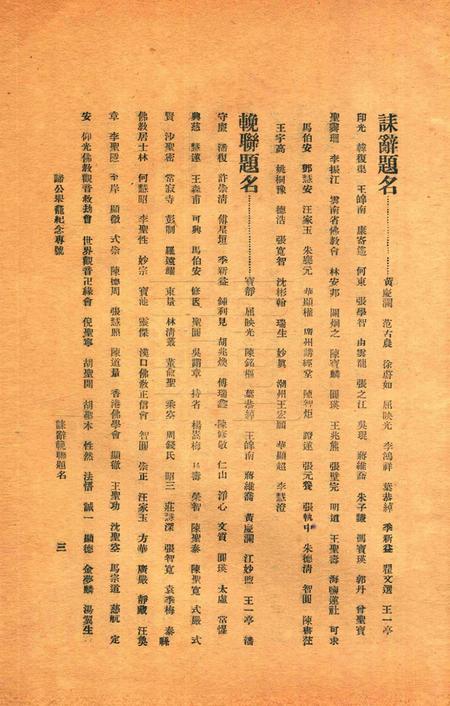 誄辭題名…………………黃慶瀾 范古農 徐蔚如 屈映光 李鴻祥 葉恭綽 季新益 翟文選 王一亭
印光 韓復榘 王皞南 康寄遙 何東 張學智 由雲龍 張之江 吳琨 蔣維喬 朱子謙 馮寶瑛 郭丹 曾聖寶
聖壽 李振江 雲南省佛教會 林安邦 關炯之 陳寶麟 圓瑛 王兆熊 張壁完 明道 王聖壽 海嶠蓮社 可求
馬伯安 鄧慧安 汪家玉 朱慶元 華顯權 廣州講經堂 陳智炬 證蓮 張元養 張執中 朱德清 智圓 陳書茳
王宇高 姚桐豫 德浩 張寬智 沈彬翰 瑞生 妙眞 潮州王宏願 華顯超 李慧澄
輓聯題名…………………寶靜 屈映光 陳銘樞 葉恭綽 王皞南 蔣維喬 黃慶瀾 江妙煦 王一亭 潘
守廉 潘復 許崇清 傅星垣 季新益 鍾利見 胡兆煥 傅瑞鑫 陳修敬 仁山 淨心 文質 圓瑛 太虛 常惺
興慈 慧遠 王森甫 可興 馬伯安 修慇 聖圓 吳蕭章 持者 楊 梅 壽 榮智 陳聖泰 陳聖寬 式嚴 式
賢 沙聖密 常寂寺 彭制 羅遠耀 東量 林清叢 黃俞聖 乘安 周錢氏 昭三 莊謙深 張智寬 袁季梅 泰縣
佛教居士林 何慧昭 李聖性 妙宗 寶池 靈深 漢口佛教正信會 智圓 崇正 汪家玉 方華 唐嚴 靜藏 汪奠
章 李聖陸 平岸 顯徹 式崇 陳德周 張慧照 陳道量 香港佛學會 顯徹 王聖功 沈聖姿 馬宗道 慈航 定
安 仰光佛教觀音救劫會 世界觀音卍緣會 倪聖寧 胡聖開 胡 本 性然 法悟 誠一 顯德 金夢麟 湯翼生
諦公畢龍紀念專號
誄辭輓聯題名
三